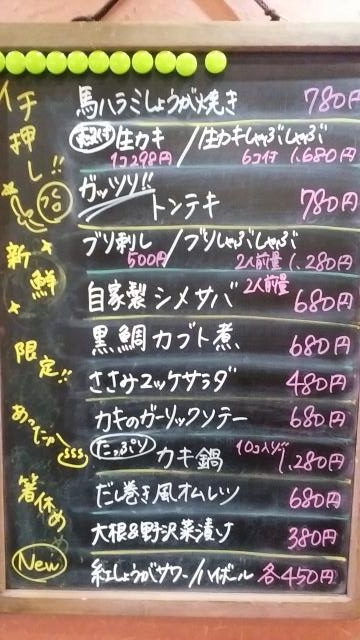 イチ押し!!
馬ハラミしょうが焼き 780円
生カキ / 生カキしゃぶしゃぶ
1コ298円 6コ付 1,680円
ガッツリ!!
トンテキ 780円
新鮮
ブリ刺し / ブリしゃぶしゃぶ
500円 2人前量 1,280円
2人前量
自家製シメサバ 680円
限定!!
黒鯛カブト煮 680円
ささみユッケサラダ 480円
カキのガーリックソテー 680円
たっぷり カキ鍋 10コ入り 1,280円
箸休め
だし巻き風オムレツ 680円
大根&野沢菜漬け 380円
New
紅しょうがサワー/ハイボール 各450円